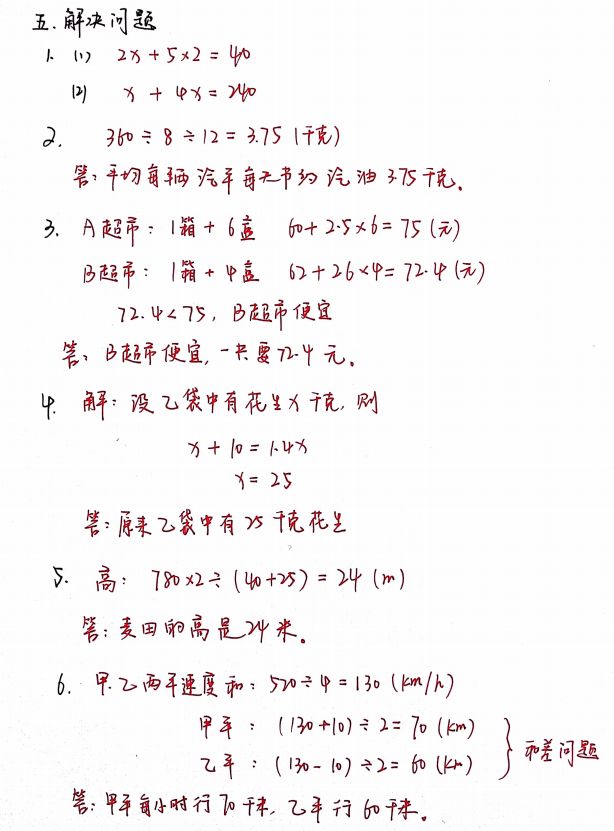 五.解决问题
1. (1) 2x+5×2=40
(2) x+4x=240
2. 360÷8÷12=3.75(千克)
答:平均每辆汽车每天节约汽油3.75千克。
3. A超市:1箱+6盒 60+2.5×6=75(元)
B超市:1箱+4盒 62+26×4=72.4(元)
72.4<75,B超市便宜
答:B超市便宜,一共要72.4元。
4. 解:设乙袋中有花生x千克,则
x+10=1.4x
x=25
答:原来乙袋中有25千克花生
5. 高:780×2÷(40+25)=24(m)
答:麦田的高是24米。
6. 甲.乙两车速度和:520÷4=130(km/h)
甲车:(130+10)÷2=70(km)
乙车:(130-10)÷2=60(km)
和差问题
答:甲车每小时行70千米,乙车行60千米。